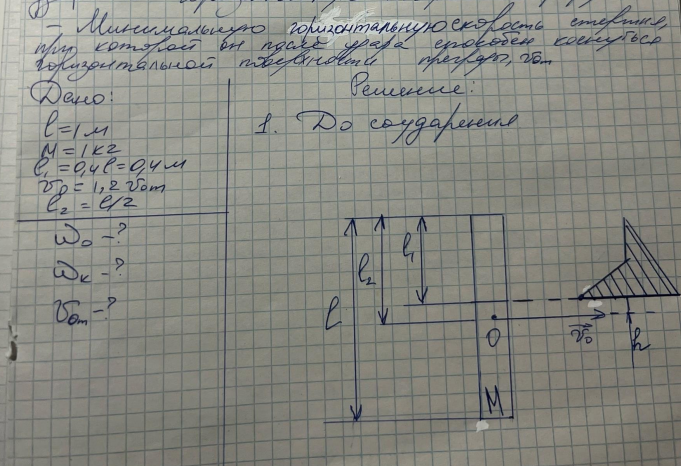 - Минимальную горизонтальную скорость стержня,
при которой он после удара способен коснуться
горизонтальной поверхности преграды, v₀m
Дано:
Решение:
l = 1 м
M = 1 кг
l₁ = 0,4l = 0,4 м
v₀ = 1,2 v₀m
l₂ = l/2
1. До соударения
ω₀ - ?
ωк - ?
v₀m - ?
l
l₂
l₁
O
v₀
h
M